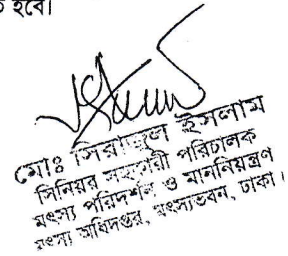 হবে।
মোঃ সিরাজুল ইসলাম
সিনিয়র সহকারী পরিচালক
মৎস্য পরিদর্শন ও মাননিয়ন্ত্রণ
মৎস্য অধিদপ্তর, মৎস্যভবন, ঢাকা।